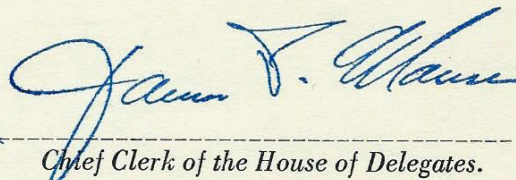 James P. Mause
Chief Clerk of the House of Delegates.